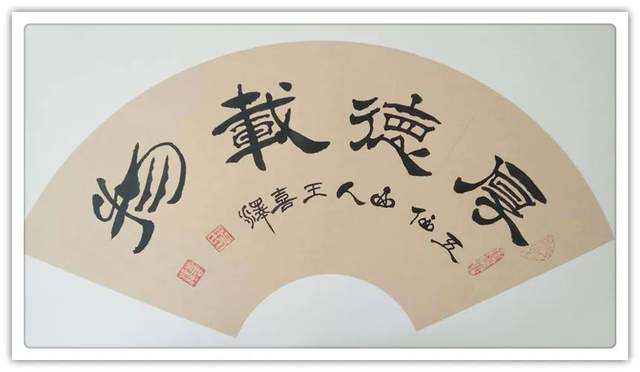 厚德載物
五人王喜澤